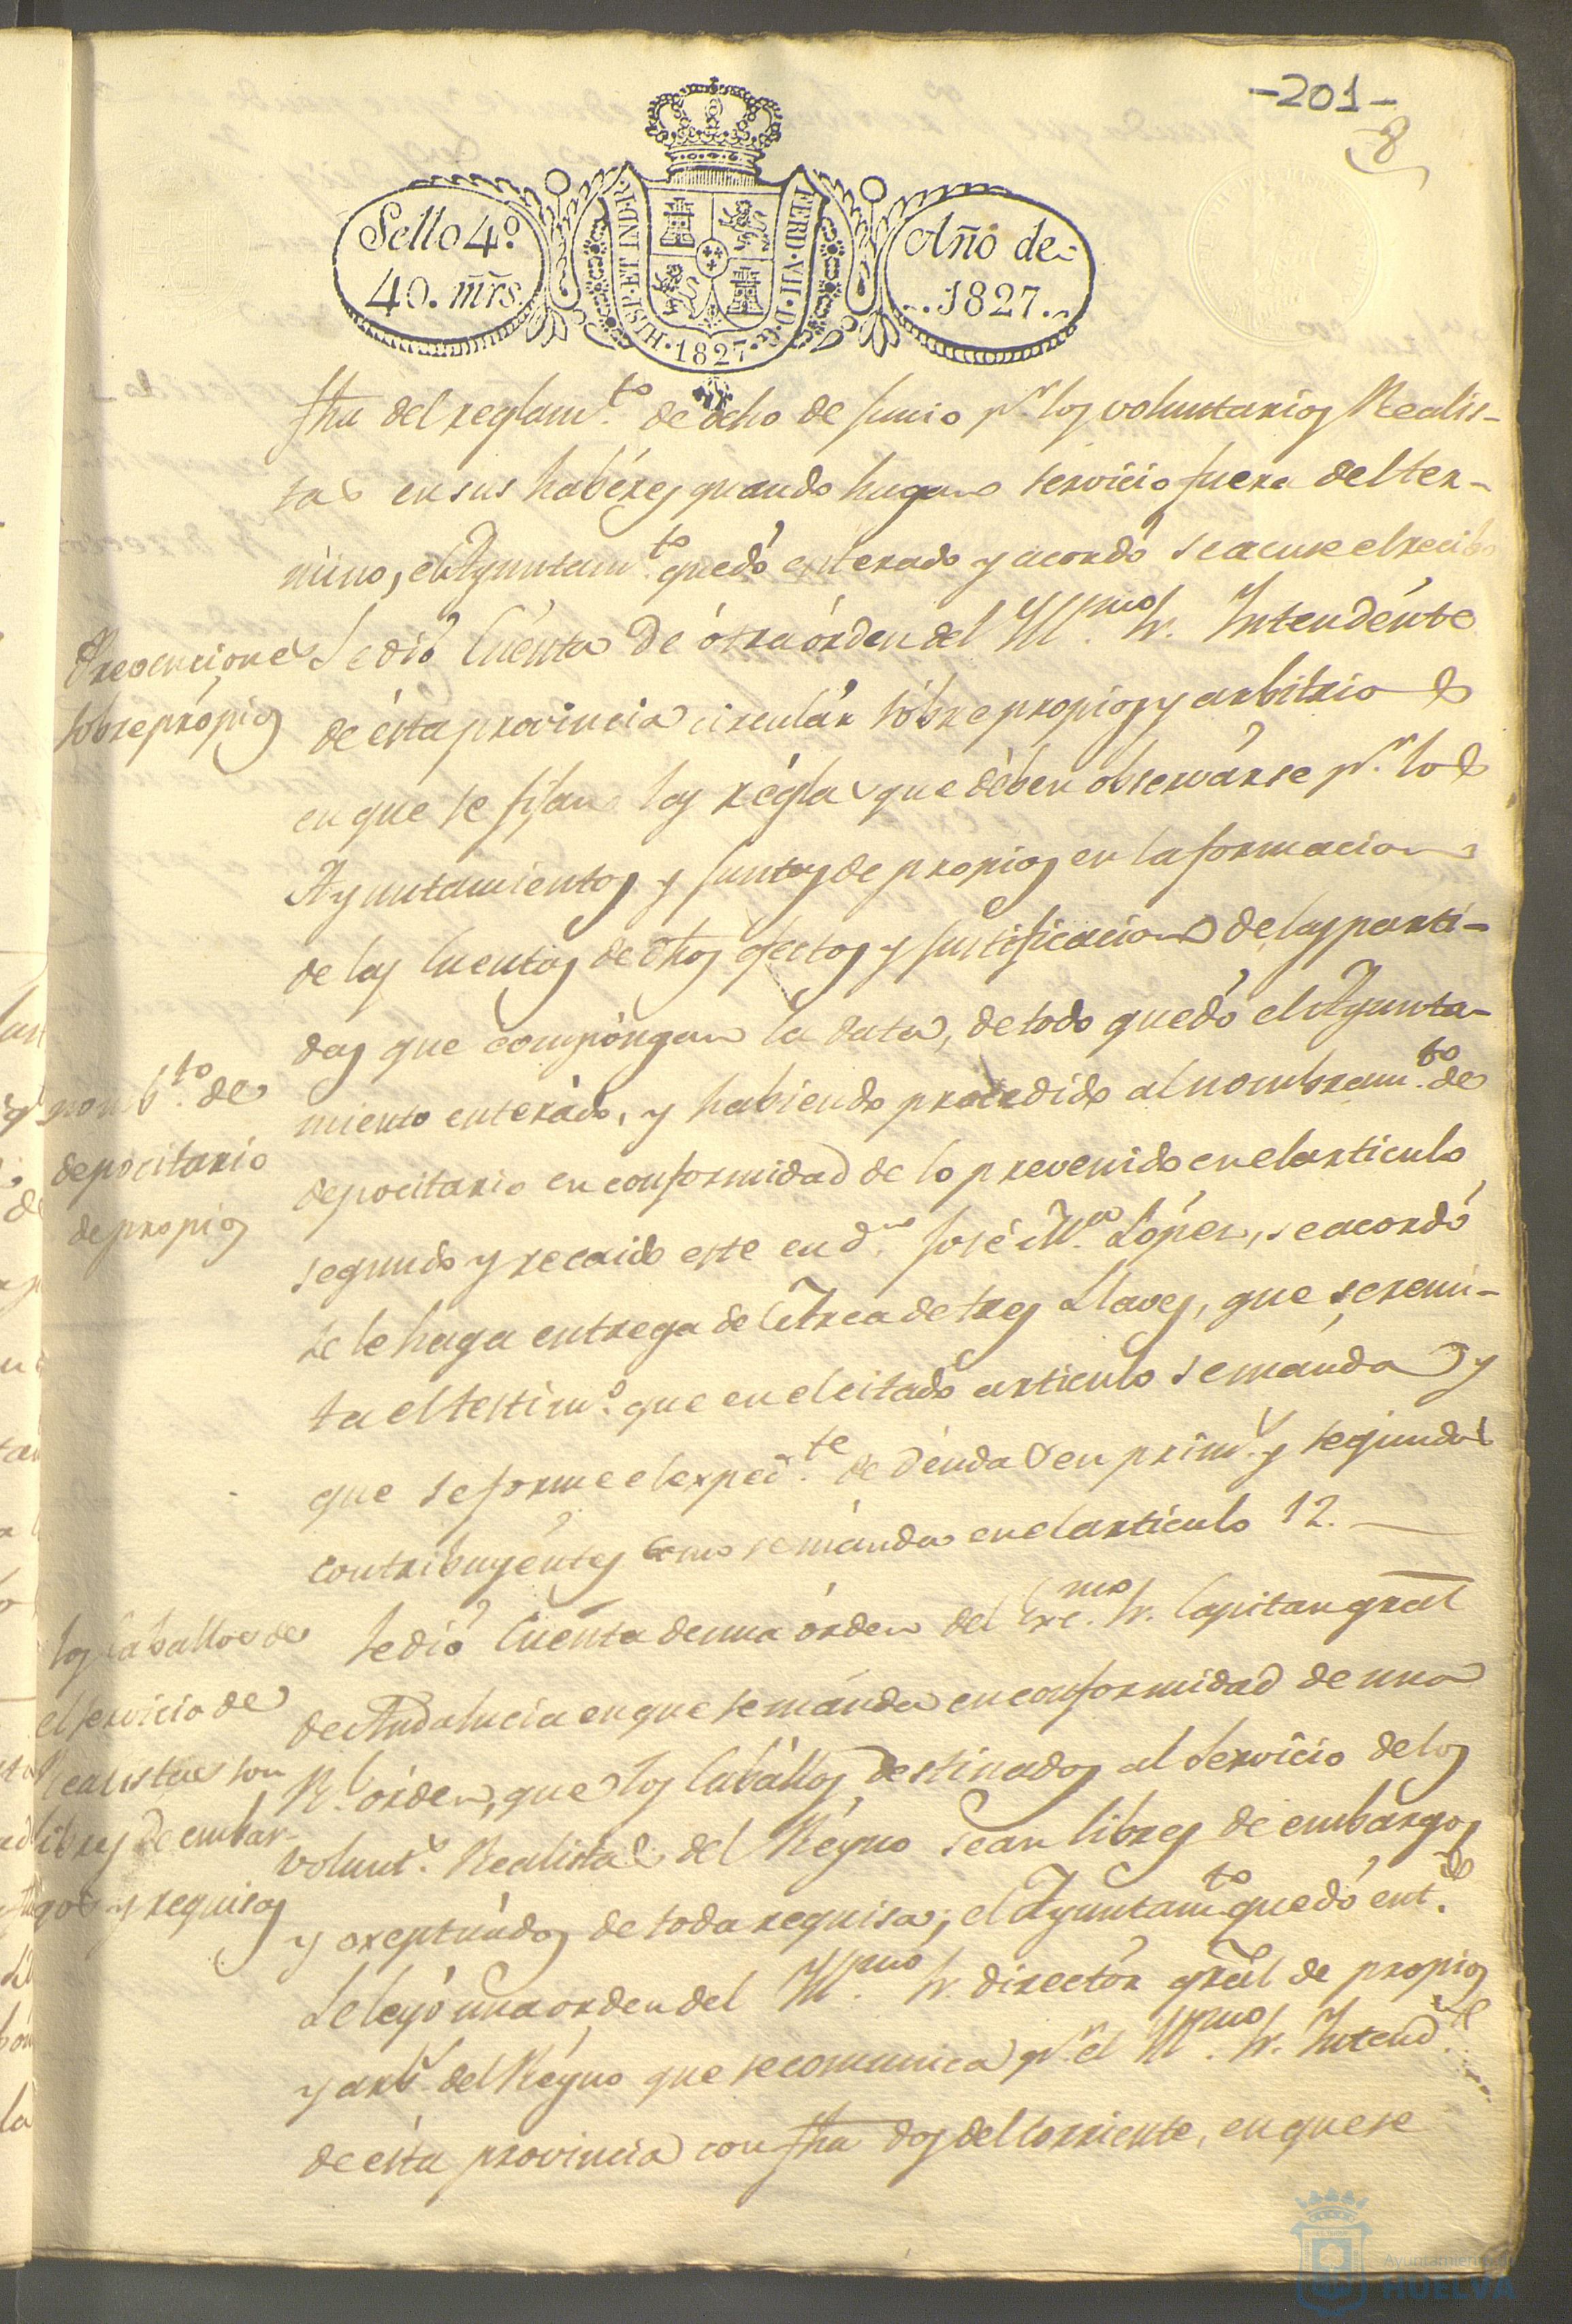 -201-
8
Sello 4º
40. mrs.
HISP·ET INDR·
FERD·VII·D·G·
·1827·
Año de
..1827..
fha del reglam.to de ocho de Junio pr. los voluntarios Realis-
tas en sus habéres quando hagan servicio fuera del ter-
mino, el Ayuntam.to quedó enterado y acordó se acuse el recibo
Prevenciones
sobre própios
Se dió Cuénta de ótra órden del Yll.mo Sr. Intendénte
de ésta provincia circulár sóbre propios y arbitrios
en que se fijan las régla que dében observárse pr. los
Ayuntamientos y Juntas de propios en la formacion
de las Cuentas de dhos efectos y Justificacion de las parti-
das que compóngan la data, de todo quedó el Ayunta-
miento enterádo, y habiendo procedido al nombram.to de
nomb.to de
depocitario
de propios
depocitario en conformidad de lo prevenido en el articulo
segundo y recaido este en d.n José M.a López, se acordó
se le haga entrega del Arca de tres Llaves, que se remi-
ta el testim.o que en el citado articulo se mánda y
que se forme el exped.te de déudas en prim.s y segundos
contribuyéntes como se mánda en el articulo 12.
los Caballos de
el servicio de
Realistas son
libres de embar-
gos y requisas
Se dió Cuénta de una órden del Exc.mo Sr. Capitan gral
de Andalucia en que se mánda en conformidad de una
Rl. órden, que los Cabállos destinados al Servicio de los
volunt.s Realistas del Reyno sean libres de embárgos
y exeptuádos de toda requisa; el Ayuntam.to quedó ent.do
Se leyó una orden del Yll.mo Sr. diréctor gral de propios
y arb.s del Reyno que se comunica pr. el Yll.mo Sr. Intend.te
de ésta provincia con fha dos del corriente, en que se
Ayuntamiento de
HUELVA